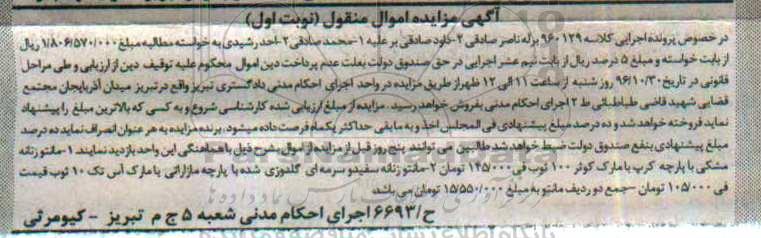 آگهی مزایده اموال منقول (نوبت اول)
در خصوص پرونده اجرایی کلاسه ۹۶۰۱۲۹ برله ناصر صادقی ۲-داود صادقی بر علیه ۱-محمد صادقی ۲-احد رشیدی به خواسته مطالبه مبلغ ۱/۸۰۶/۵۷۰/۰۰۰ ریال
از بابت خواسته و مبلغ ۵ درصد ریال از بابت نیم عشر اجرایی در حق صندوق دولت بعلت عدم پرداخت دین اموال محکوم علیه توقیف دین از ارزیابی و طی مراحل
قانونی در تاریخ ۹۶/۱۰/۳۰ روز شنبه از ساعت ۱۱ الی ۱۲ ظهر از طریق مزایده در واحد اجرای احکام مدنی دادگستری تبریز واقع در تبریز میدان آذربایجان مجتمع
قضایی شهید قاضی طباطبائی ط ۲ اجرای احکام مدنی بفروش خواهد رسید. مزایده از مبلغ ارزیابی شده کارشناسی شروع و به کسی که بالاترین مبلغ را پیشنهاد
نماید فروخته خواهد شد و ده درصد مبلغ پیشنهادی فی المجلس اخذ و مابقی حداکثر یکماه فرصت داده میشود. برنده مزایده به هر عنوان انصراف نماید ده درصد
مبلغ پیشنهادی بنفع صندوق دولت ضبط خواهد شد طالبین می توانند پنج روز قبل از مزایده از اموال بشرح ذیل با هماهنگی این واحد بازدید نمایند. ۱-مانتو زنانه
مشکی با پارچه کرپ با مارک کوثر ۱۰۰ ثوب فی ۱۴۵/۰۰۰ تومان ۲-مانتو زنانه سفید و سرمه ای گلدوزی شده با پارچه مازاراتی با مارک آس تک ۱۰ ثوب قیمت
فی ۱۰۵/۰۰۰ تومان -جمع دو ردیف مانتو به مبلغ ۱۵/۵۵۰/۰۰۰ تومان می باشد
ح/۶۶۹۳ اجرای احکام مدنی شعبه ۵ ج م تبریز - کیومرثی
ParsNamadData